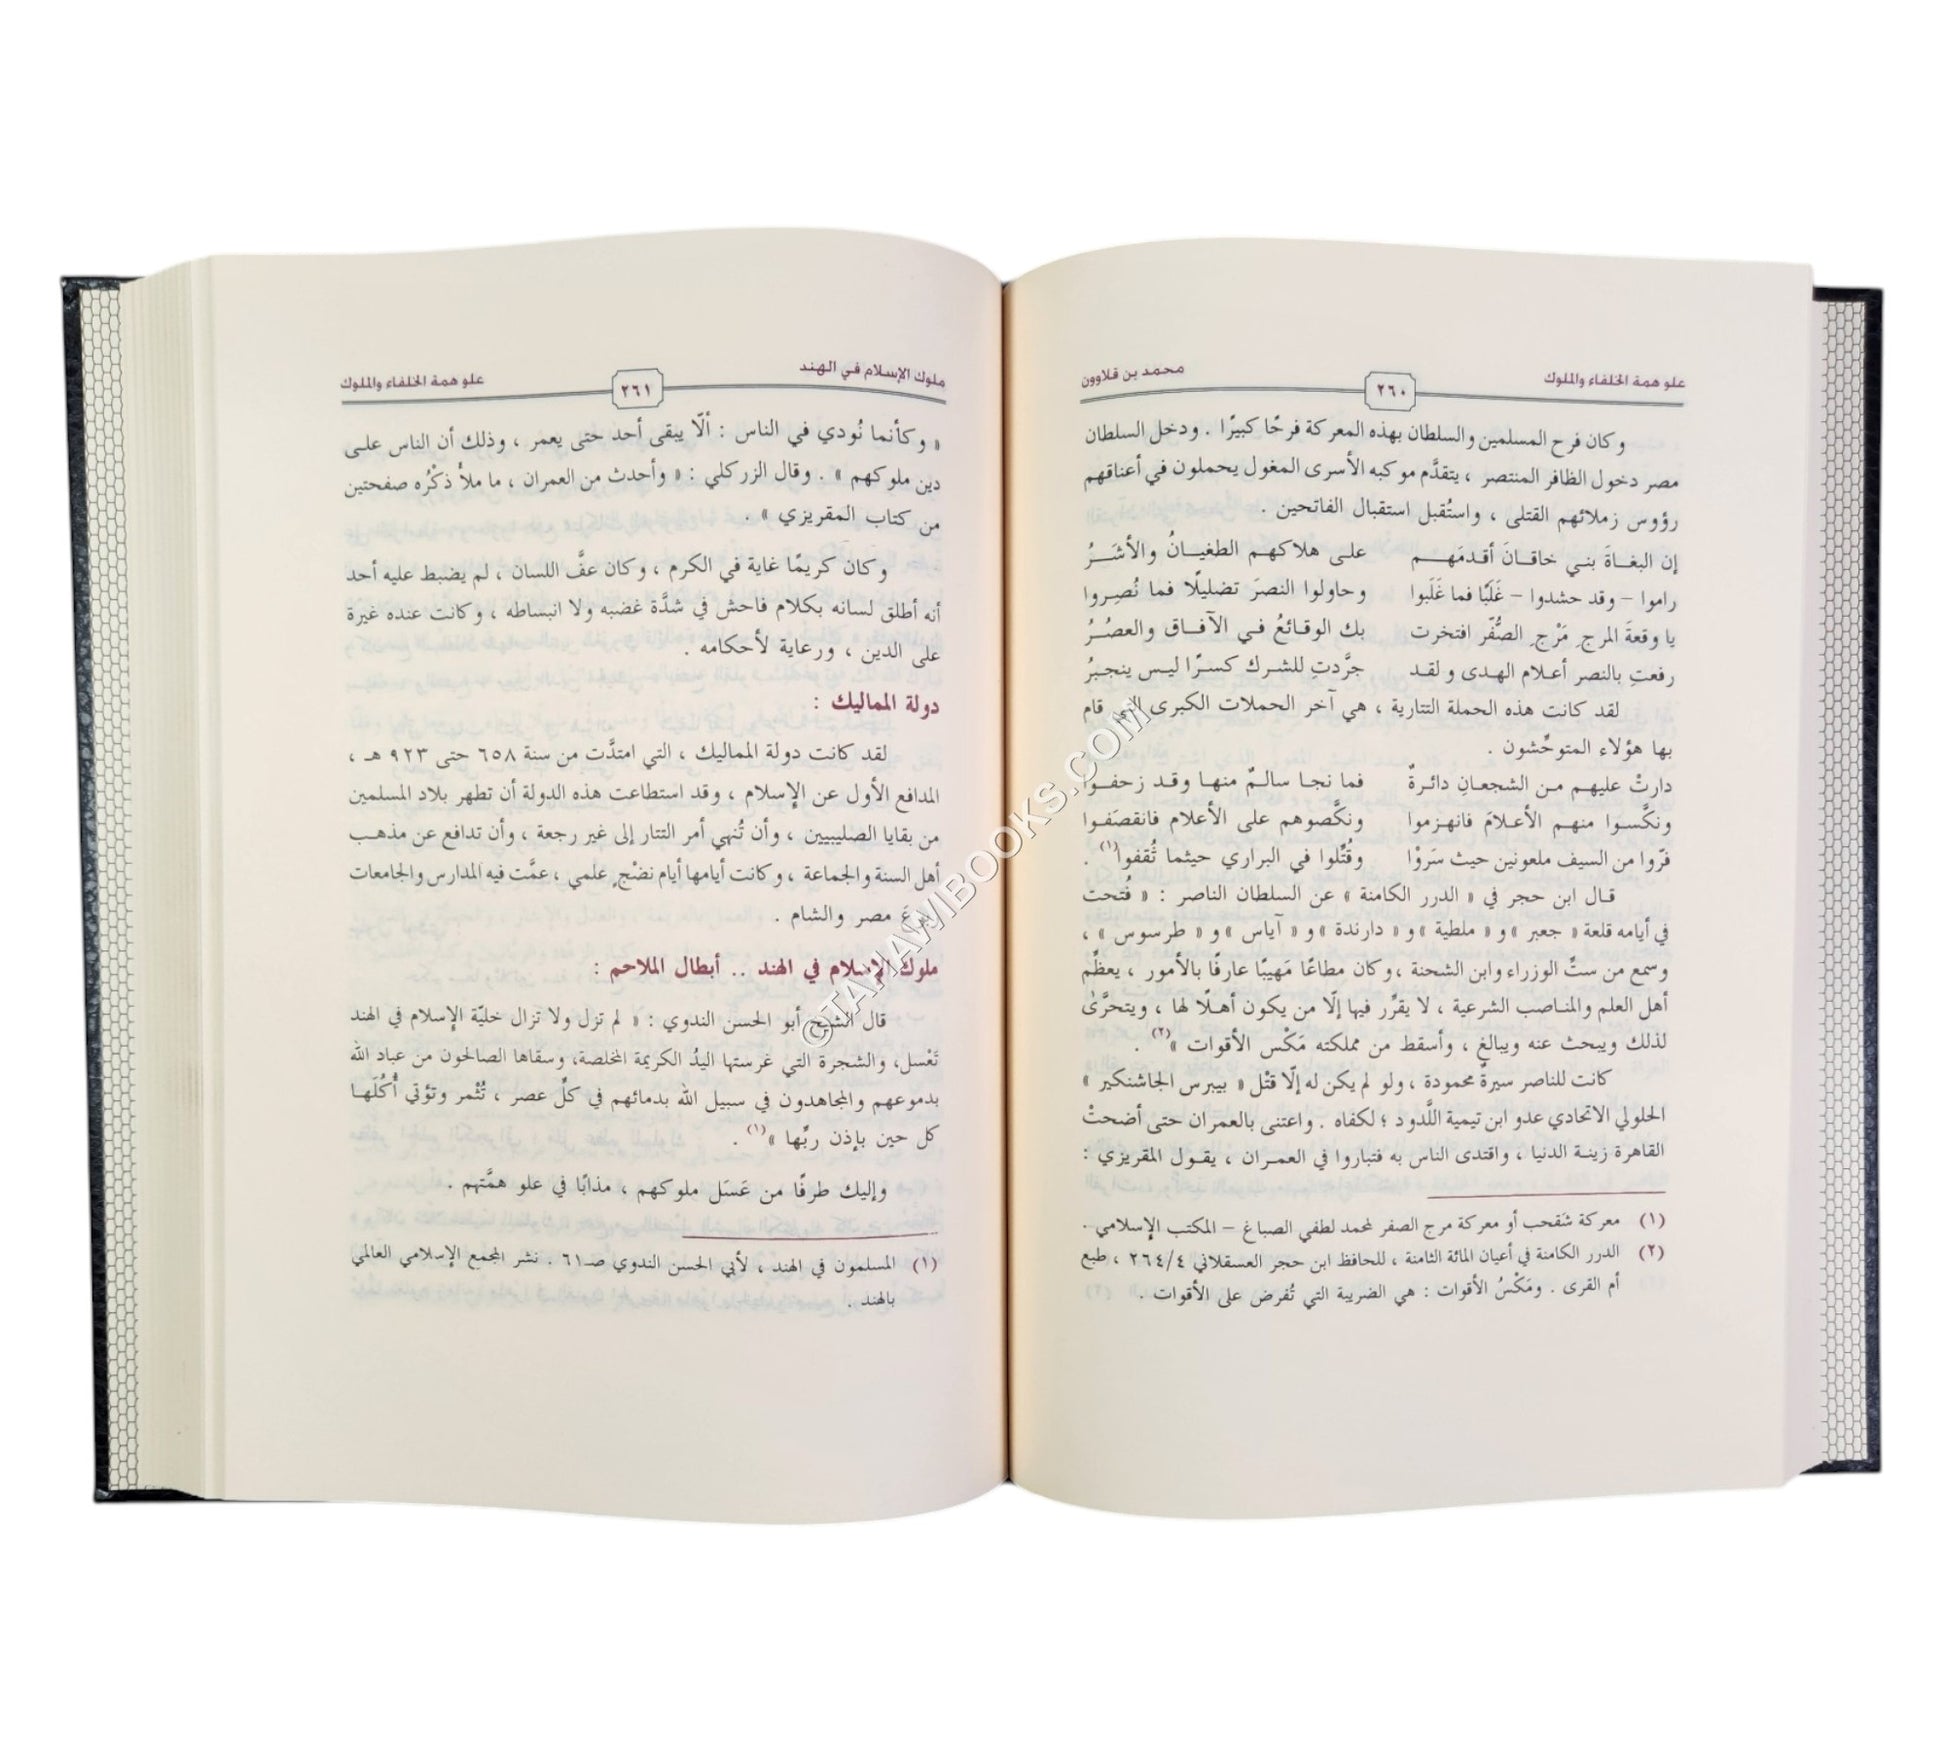 علو همة الخلفاء والملوك ٢٦٠ محمد بن قلاوون
وكان فرح المسلمين والسلطان بهذه المعركة فرحًا كبيرًا . ودخل السلطان
مصر دخول الظافر المنتصر ، يتقدَّم موكبه الأسرى المغول يحملون في أعناقهم
رؤوس زملائهم القتلى ، واستُقبل استقبال الفاتحين .
إن البغاةَ بني خاقانَ أقدمَهم على هلاكهم الطغيانُ والأشَرُ
راموا – وقد حشدوا – غَلَبًا فما غَلَبوا وحاولوا النصرَ تضليلًا فما نُصِروا
يا وقعةَ المرجِ مَرْجِ الصُّفّر افتخرت بك الوقائعُ في الآفاق والعصُرُ
رفعتِ بالنصر أعلام الهدى ولقد جرَّدتِ للشرك كسرًا ليس ينجبرُ
لقد كانت هذه الحملة التتارية ، هي آخر الحملات الكبرى التي قام
بها هؤلاء المتوحِّشون .
دارتْ عليهم من الشجعانِ دائرةٌ فما نجا سالمٌ منها وقد زحفوا
ونكَّسوا منهم الأعلامَ فانهزموا ونكَّصوهم على الأعلام فانقصَفوا
فرّوا من السيف ملعونين حيث سَروْا وقُتِّلوا في البراري حيثما ثُقفوا(١) .
قال ابن حجر في « الدرر الكامنة » عن السلطان الناصر : « فُتحت
في أيامه قلعة « جعبر » و « ملطية » و « دارندة » و « آياس » و « طرسوس » ،
وسمع من ستِّ الوزراء وابن الشحنة ، وكان مطاعًا مَهيبًا عارفًا بالأمور ، يعظِّم
أهل العلم والمناصب الشرعية ، لا يقرِّر فيها إلّا من يكون أهلًا لها ، ويتحرَّىٰ
لذلك ويبحث عنه ويبالغ ، وأسقط من مملكته مَكْس الأقوات »(٢) .
كانت للناصر سيرةٌ محمودة ، ولو لم يكن له إلّا قتْل « بيبرس الجاشنكير »
الحلولي الاتحادي عدو ابن تيمية اللَّدود ؛ لكفاه . واعتنى بالعمران حتى أضحتْ
القاهرة زينة الدنيا ، واقتدى الناس به فتباروا في العمران ، يقول المقريزي :
(١) معركة شَقحب أو معركة مرج الصفر لمحمد لطفي الصباغ – المكتب الإسلامي .
(٢) الدرر الكامنة في أعيان المائة الثامنة ، للحافظ ابن حجر العسقلاني ٢٦٤/٤ ، طبع
أم القرى . ومَكْسُ الأقوات : هي الضريبة التي تُفرض على الأقوات .
ملوك الإسلام في الهند ٢٦١ علو همة الخلفاء والملوك
« وكأنما نُودي في الناس : ألّا يبقى أحد حتى يعمر ، وذلك أن الناس على
دين ملوكهم » . وقال الزركلي : « وأحدث من العمران ، ما ملأ ذكْرُه صفحتين
من كتاب المقريزي » .
وكان كريمًا غاية في الكرم ، وكان عفَّ اللسان ، لم يضبط عليه أحد
أنه أطلق لسانه بكلام فاحش في شدَّة غضبه ولا انبساطه ، وكانت عنده غيرة
على الدين ، ورعاية لأحكامه .
دولة المماليك :
لقد كانت دولة المماليك ، التي امتدَّت من سنة ٦٥٨ حتى ٩٢٣ هـ ،
المدافع الأول عن الإسلام ، وقد استطاعت هذه الدولة أن تطهر بلاد المسلمين
من بقايا الصليبيين ، وأن تُنهي أمر التتار إلى غير رجعة ، وأن تدافع عن مذهب
أهل السنة والجماعة ، وكانت أيامها أيام نضْجٍ علمي ، عمَّت فيه المدارس والجامعات
ربوعَ مصر والشام .
ملوك الإسلام في الهند .. أبطال الملاحم :
قال الشيخ أبو الحسن الندوي : « لم تزل ولا تزال خليّة الإسلام في الهند
تَعْسل، والشجرة التي غرستها اليدُ الكريمة المخلصة، وسقاها الصالحون من عباد الله
بدموعهم والمجاهدون في سبيل الله بدمائهم في كلِّ عصر ، تُثمر وتؤتي أُكُلَها
كل حين بإذن ربِّها »(١) .
وإليك طرفًا من عَسَل ملوكهم ، مذابًا في علو همَّتهم .
(١) المسلمون في الهند ، لأبي الحسن الندوي صـ٦١ . نشر المجمع الإسلامي العالمي
بالهند .
©TAHAWIBOOKS.COM